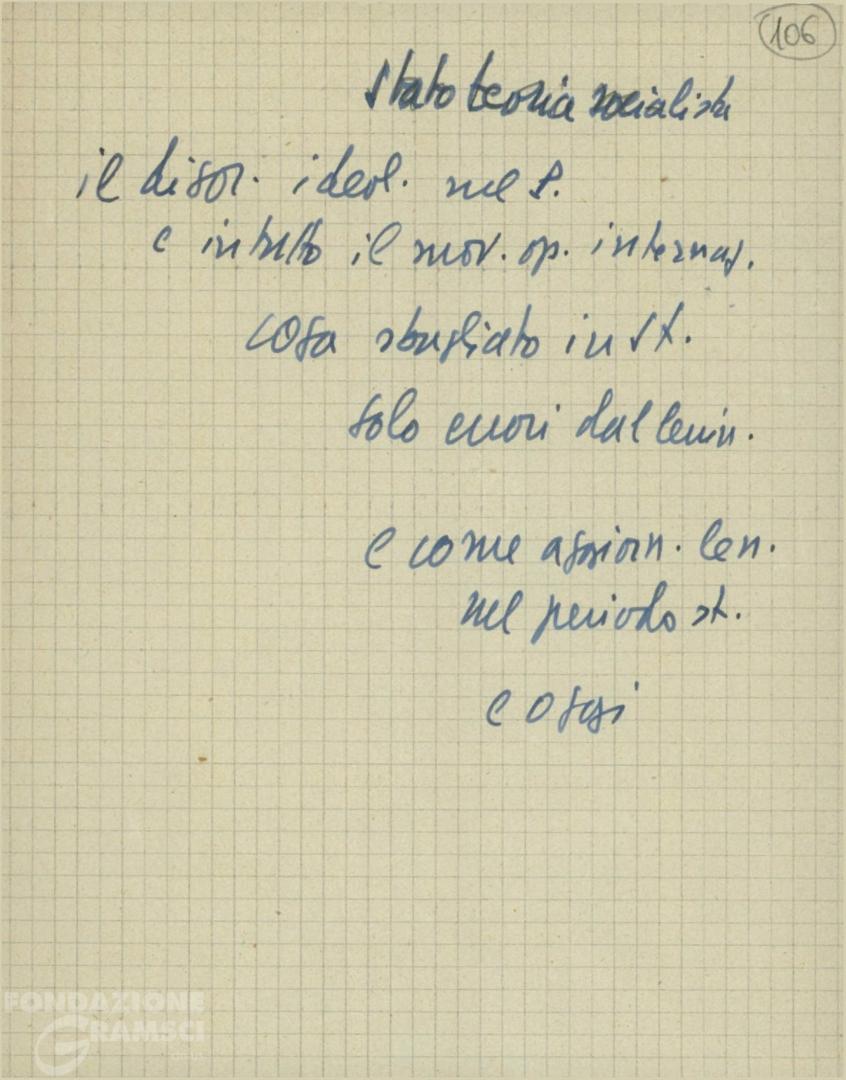 106
Stato teoria socialista
il disor. ideol. nel P.
e in tutto il mov. op. internaz.
cosa sbagliato in St.
solo errori dal lenin.
e come aggiorn. len.
nel periodo st.
e oggi
FONDAZIONE
GRAMSCI